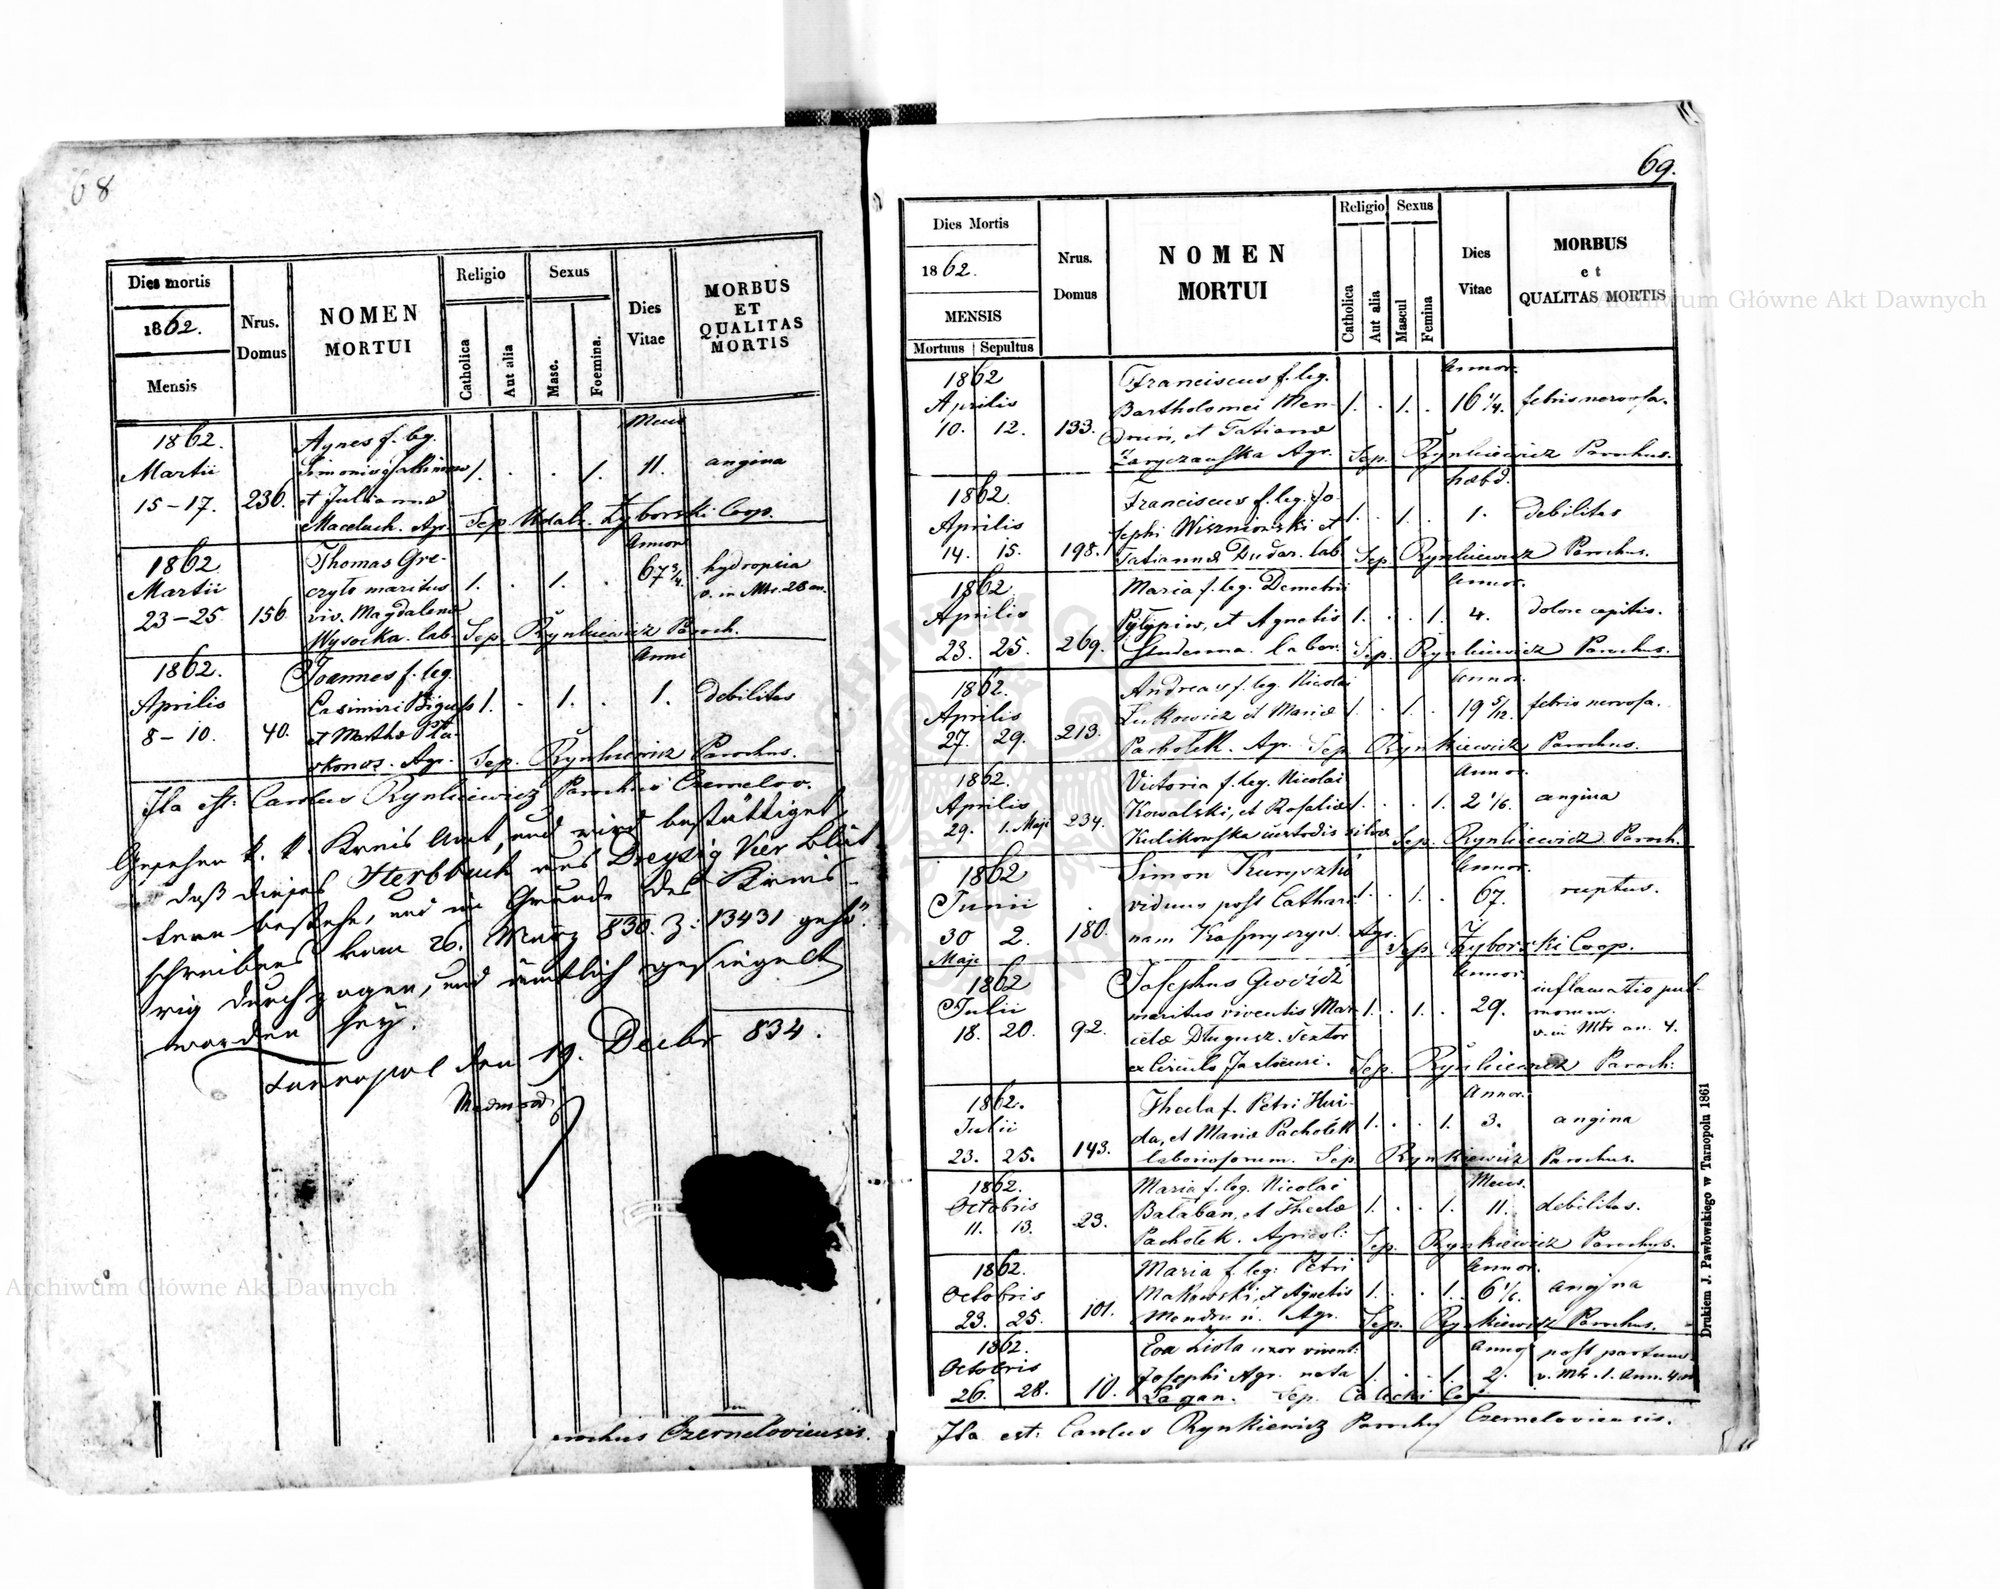 68
Dies mortis
1862.
Mensis
Nrus.
Domus
NOMEN
MORTUI
Religio
Catholica
Aut alia
Sexus
Masc.
Foemina.
Dies
Vitae
MORBUS
ET
QUALITAS
MORTIS
1862.
Martii
15-17.
236.
Agnes f. leg.
Simonis
et Julianna
Maceluch. Agr.
1. . . 1.
Mens
11.
angina
Sep. Udalr. Zyborski Coop.
1862
Martii
23-25
156
Thomas Gre-
czylo maritus
viv. Magdalena
Wysocka. lab.
1. . 1. .
Annor
67 3/4.
hydropsia
v. in Mtr. 28 an.
Sep. Rynkiewicz Paroch.
1862.
Aprilis
8-10.
40.
Joannes f. leg.
Casimiri
et Martha
Agr.
1. . 1. .
Anni
1.
debilitas
Sep. Rynkiewicz Parochus.
Ita est: Carolus Rynkiewicz Parochus Czernelov.
Gesehen k. k. Kreis Amt, und wird bestättiget,
daß dieses Sterbbuch aus Dreysig Vier Blät
tern bestehe, und im Grunde des Kreis-
schreibens vom 26. März 830. Z: 13431 gehö-
rig durchzogen, und ämtlich gesiegelt
worden sey.
Tarnopol den 19. Decbr 834.
Parochus Czerneloviensis.
69.
Dies Mortis
1862.
MENSIS
Mortuus Sepultus
Nrus.
Domus
NOMEN
MORTUI
Religio
Catholica
Aut alia
Sexus
Mascul
Femina
Dies
Vitae
MORBUS
et
QUALITAS MORTIS
1862
Aprilis
10. 12.
133.
Franciscus f. leg.
Bartholomei Men-
druń, et Tatianna
Zaryczańska Agr.
1. . 1. .
Annor.
16 1/4.
febris nervosa.
Sep. Rynkiewicz Parochus.
1862
Aprilis
14. 15.
198.
Franciscus f. leg. Jo
sephi Wiszniowski et
Tatianna Dudar. lab.
1. . 1. .
hebd.
1.
debilitas
Sep. Rynkiewicz Parochus.
1862
Aprilis
23. 25.
269.
Maria f. leg. Demetrii
Pylypiw, et Agnetis
labor.
1. . . 1.
Annor.
4.
dolore capitis.
Sep. Rynkiewicz Parochus.
1862.
Aprilis
27. 29.
213.
Andreas f. leg. Nicolai
Łukowicz et Maria
Pachołek. Agr.
1. . 1. .
Annor.
19 5/12.
febris nervosa.
Sep. Rynkiewicz Parochus.
1862.
Aprilis
29. 1. Maji
234.
Victoria f. leg. Nicolai
Kowalski, et Rosalia
Kulikowska custodis silvae
1. . . 1.
Annor.
2 1/6.
angina
Sep. Rynkiewicz Paroch.
1862
Junii
30 2.
Maji
180.
Simon
viduus post Cathari
nam Agr.
1. . 1. .
Annor.
67.
ruptus.
Sep. Zyborski Coop.
1862
Julii
18. 20.
92.
Josephus Gwóźdź
maritus viventis Mar
iclae Długusz. Textor
ex Circulo
1. . 1. .
Annor
29.
inflamatio pul-
monum.
v. in Mtr an. 4.
Sep. Rynkiewicz Paroch:
1862.
Julii
23. 25.
143.
Thecla f. Petri Hui-
da, et Maria Pachołek
laboriosorum.
1. . . 1.
Annor.
3.
angina
Sep. Rynkiewicz Parochus.
1862.
Octobris
11. 13.
23.
Maria f. leg. Nicolai
Bałaban, et Thecla
Pachołek. Agricol:
1. . . 1.
Mens.
11.
debilitas.
Sep. Rynkiewicz Parochus.
1862.
Octobris
23. 25.
101.
Maria f. leg: Petri
Makowski, et Agnetis
Mendruń. Agr.
1. . . 1.
Annor.
6 1/6.
angina
Sep. Rynkiewicz Parochus.
1862.
Octobris
26. 28.
10.
Eva Zioła uxor vivent:
Josephi Agr. nata
Łagan.
1. . . 1.
post partum
v. Mtr. 1. Ann. 4 m
Sep. Co
Ita est: Carolus Rynkiewicz Parochus Czerneloviensis.
Drukiem J. Pawłowskiego w Tarnopolu 1861
Archiwum Główne Akt Dawnych
Archiwum Główne Akt Dawnych